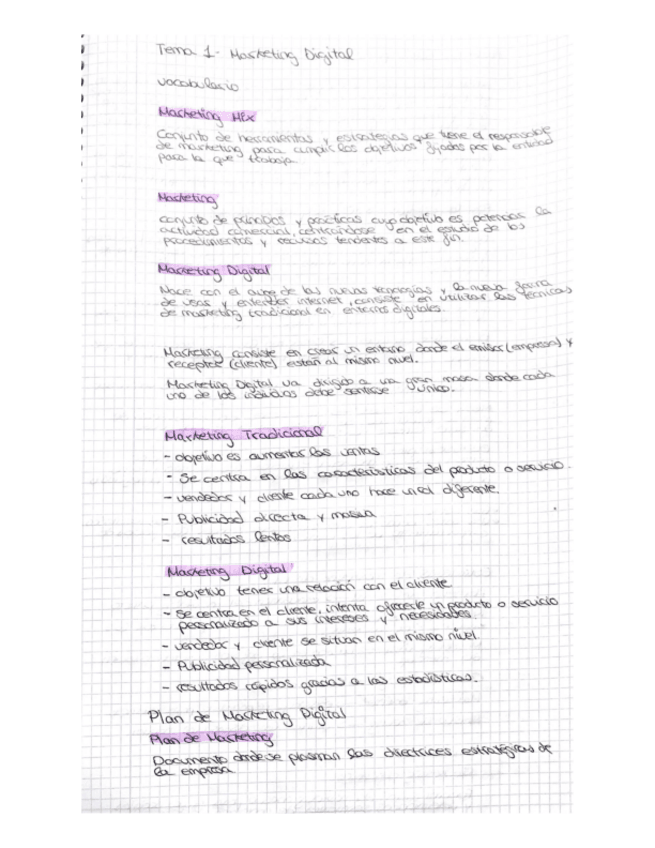 Tema 1 - Marketing Digital
vocabulario
Marketing Mix
Conjunto de herramientas y estrategias que tiene el responsable
de marketing para cumplir los objetivos fijados por la entidad
para la que trabaja.
Marketing
conjunto de principios y prácticas cuyo objetivo es potenciar la
actividad comercial, centrándose en el estudio de los
procedimientos y recursos tendentes a este fin.
Marketing Digital
Nace con el auge de las nuevas tecnologías y la nueva forma
de usar y entender internet, consiste en utilizar las técnicas
de marketing tradicional en entornos digitales.
Marketing consiste en crear un entorno donde el emisor (empresa) y
receptor (cliente) estan al mismo nivel.
Marketing Digital va dirigido a una gran masa donde cada
uno de los individuos debe sentirse único.
Marketing Tradicional
- objetivo es aumentar las ventas
- Se centra en las características del producto o servicio.
- vendedor y cliente cada uno hace diferente.
- Publicidad directa y masiva
- resultados lentos
Marketing Digital
- objetivo tener una relación con el cliente
- Se centra en el cliente, intenta ofrecerle un producto o servicio
personalizado a sus intereses y necesidades.
- vendedor y cliente se situan en el mismo nivel
- Publicidad personalizada
- resultados rápidos gracias a las estadísticas.
Plan de Marketing Digital
Plan de Marketing
Documento donde se plasman las directrices estratégicas de
la empresa